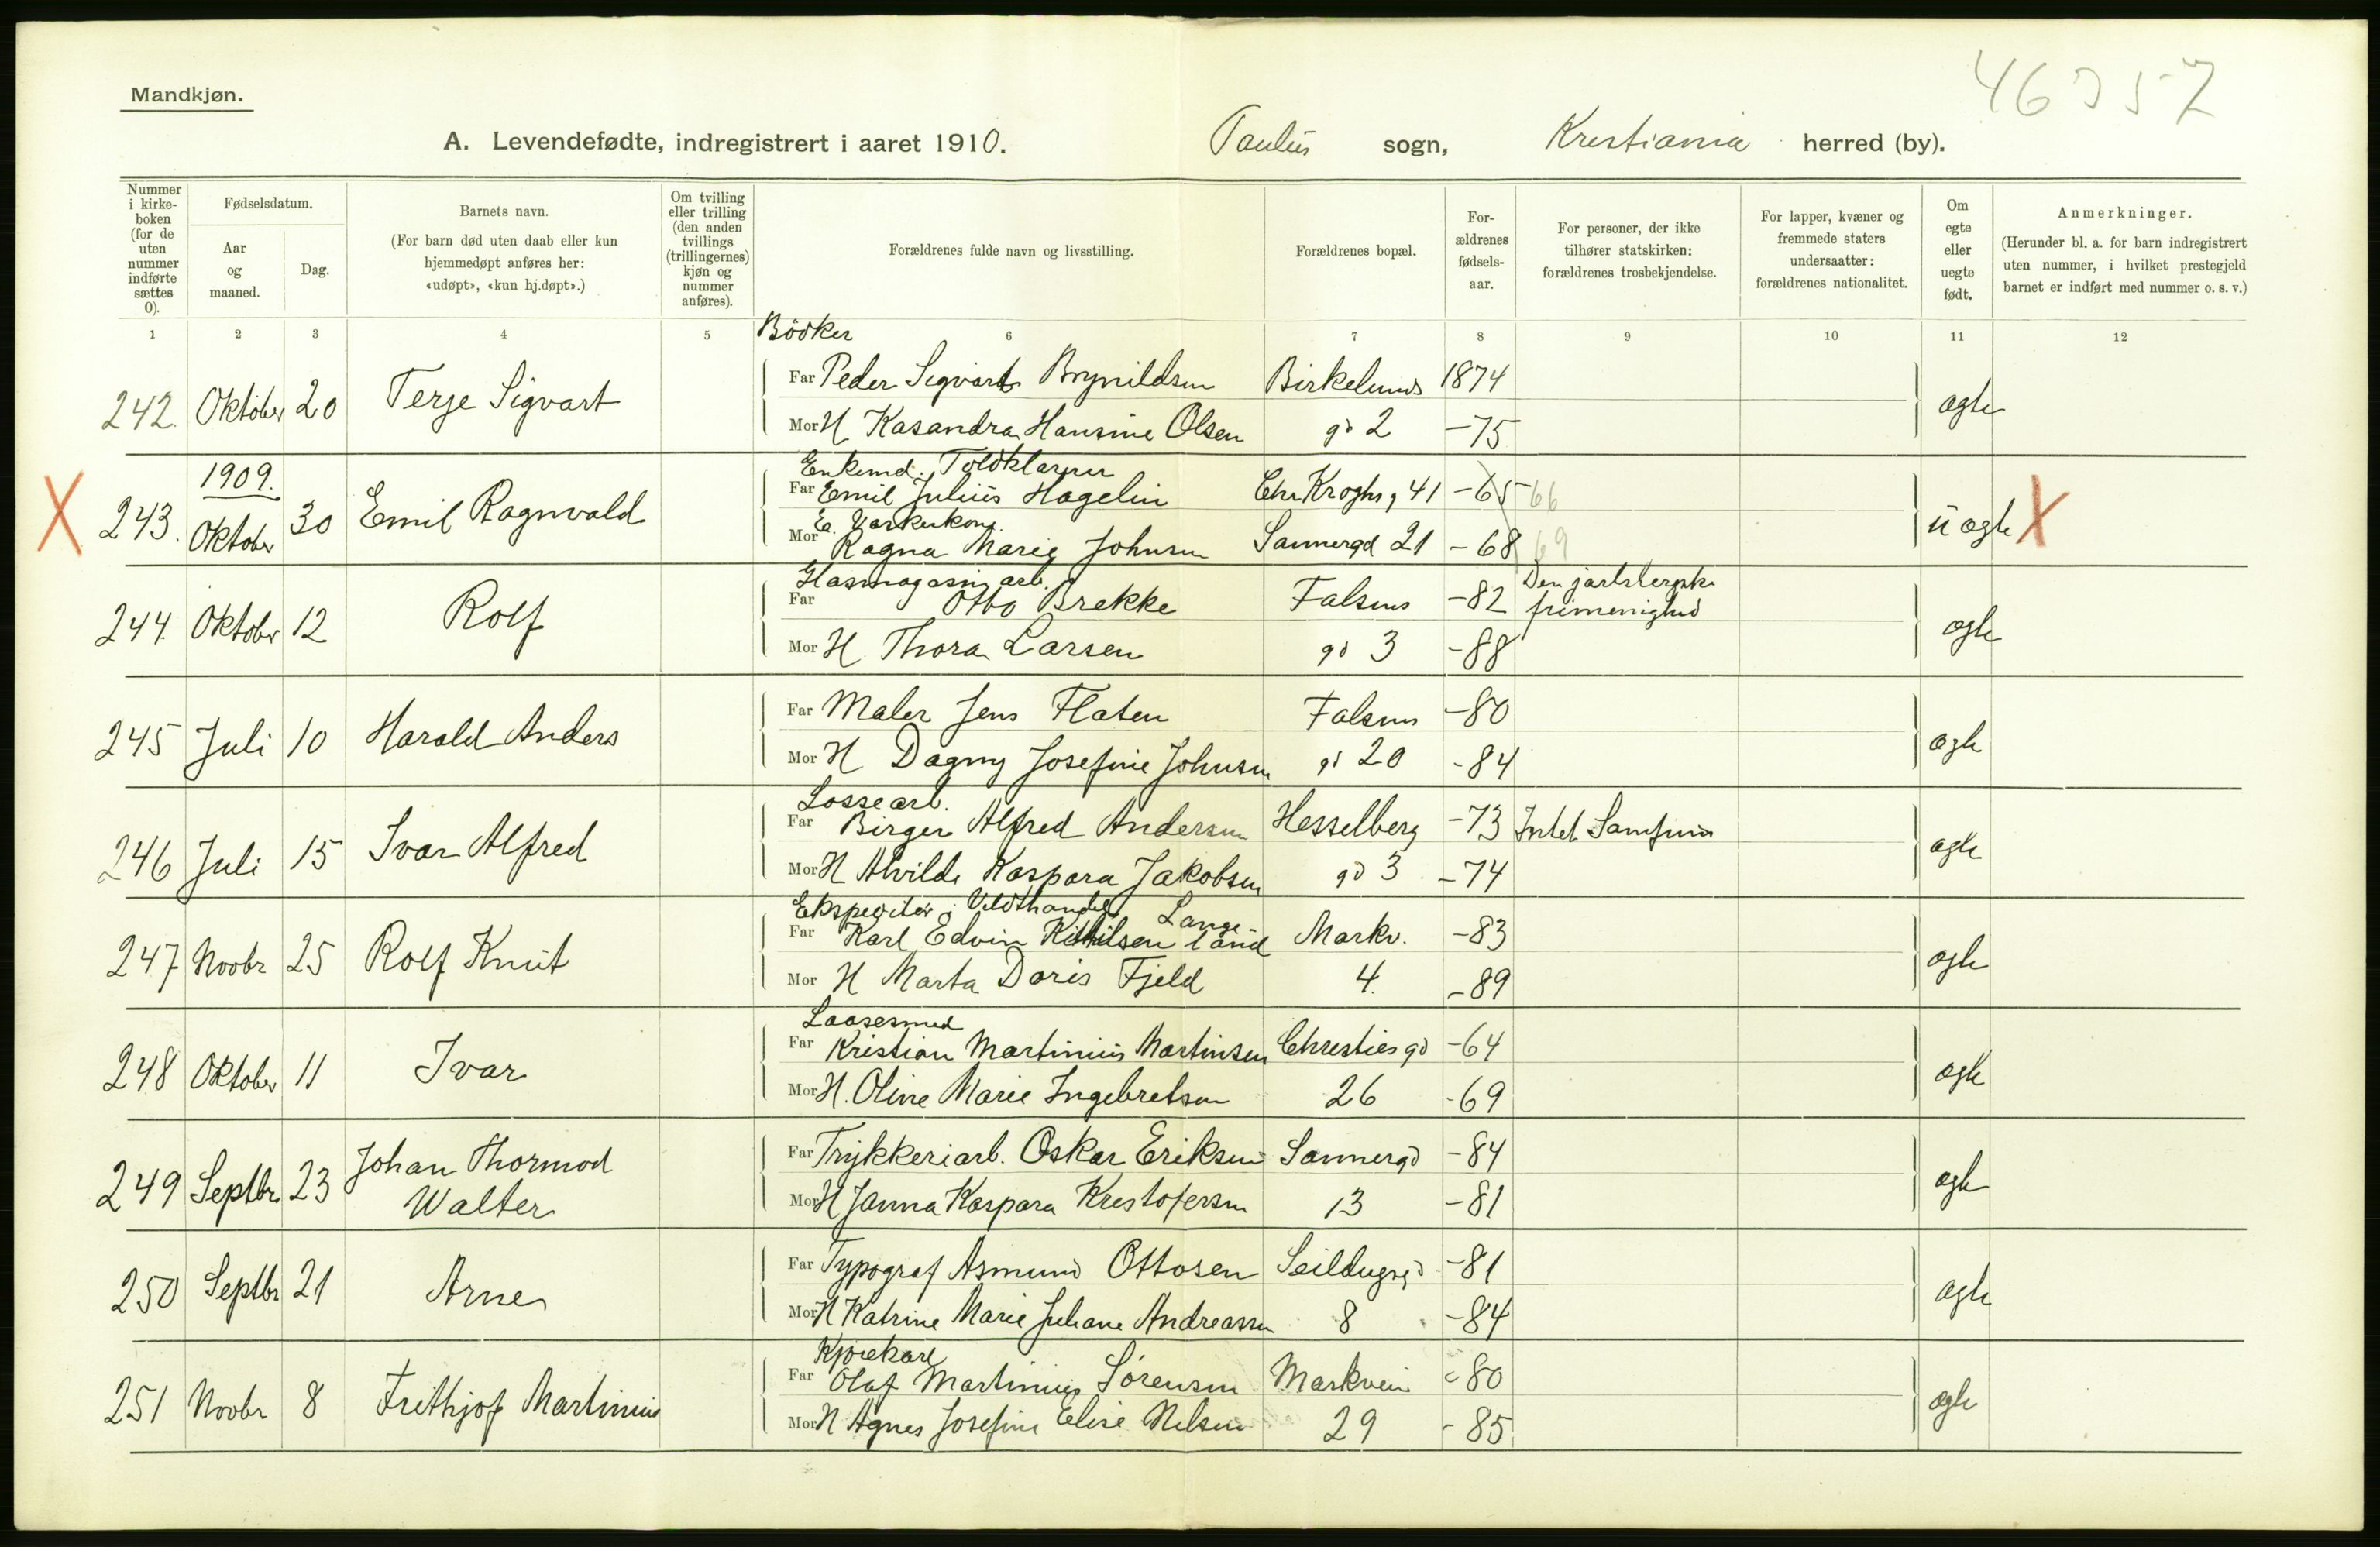 46357
Mandkjøn.
A. Levendefødte, indregistrert i aaret 1910. Paulus sogn, Kristiania herred (by).
Nummer i kirkeboken (for de uten nummer indførte sættes 0).
Fødselsdatum.
Aar og maaned.
Dag.
Barnets navn.
(For barn død uten daab eller kun hjemmedøpt anføres her: «udøpt», «kun hj.døpt».)
Om tvilling eller trilling (den anden tvillings (trillingernes) kjøn og nummer anføres).
Forældrenes fulde navn og livsstilling.
Forældrenes bopæl.
For-ældrenes fødsels-aar.
For personer, der ikke tilhører statskirken: forældrenes trosbekjendelse.
For lapper, kvæner og fremmede staters undersaatter: forældrenes nationalitet.
Om egte eller uegte født.
Anmerkninger.
(Herunder bl. a. for barn indregistrert uten nummer, i hvilket prestegjeld barnet er indført med nummer o. s. v.)
1 2 3 4 5 6 7 8 9 10 11 12
Bödker
242. Oktober 20 Terje Sigvart Far Peder Sigvart Brynildsen Birkelunds 1874 ægte
Mor H Kasandra Hansine Olsen gd 2 -75
1909. Enkemd. Toldklarerer
X 243. Oktober 30 Emil Ragnvald Far Emil Julius Hagelin Chr Kroghs g 41 -65 66 uægte X
Mor Ragna Marie Johnsen Sannergd 21 -68 69
Glasmagasinarb.
244. Oktober 12 Rolf Far Otto Brekke Falsens -82 Den jarlsbergske frimenighed ægte
Mor H Thora Larsen gd 3 -88
245 Juli 10 Harald Anders Far Maler Jens Flaten Falsens -80 ægte
Mor H Dagny Josefine Johnsen gd 20 -84
Lossearb.
246 Juli 15 Ivar Alfred Far Birger Alfred Andersen Hesselberg -73 Intet Samfund ægte
Mor H Alvilde Kaspara Jakobsen gd 3 -74
Ekspeditör i Vildthandel Lange-
247 Novbr 25 Rolf Knut Far Karl Edvin Kittilsen land Markv. -83 ægte
Mor H Marta Doris Fjeld 4. -89
Laasesmed
248 Oktober 11 Ivar Far Kristian Martinius Martinsen Christies gd -64 ægte
Mor H. Oline Marie Ingebretsen 26 -69
249 Septbr. 23 Johan Thormod Walter Far Trykkeriarb. Oskar Eriksen Sannergd -84 ægte
Mor H Janna Kaspara Kristofersen 13 -81
250 Septbr 21 Arne Far Typograf Asmund Ottosen Seildugsgd -81 ægte
Mor H Katrine Marie Juliane Andreassen 8 -84
Kjørekarl
251 Novbr 8 Frithjof Martinius Far Olaf Martinius Sörensen Markvein -80 ægte
Mor H Agnes Josefine Elise Nilsen 29 -85